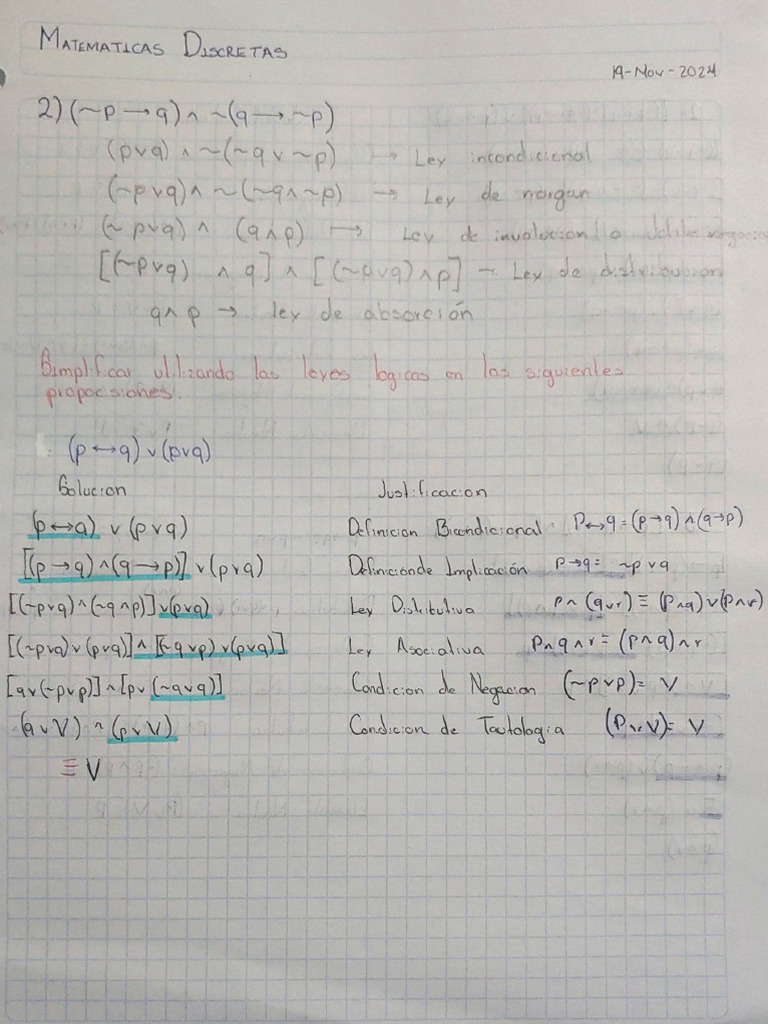 MATEMATICAS DISCRETAS
19-Nov-2024
2) (~p → q) ∧ ~(q → ~p)
(p∨q) ∧ ~(~q ∨ ~p) → Ley incondicional
(~p∨q) ∧ ~(~q ∧ ~p) → Ley de morgan
(~p∨q) ∧ (q∧p) → Ley de involucion o doble
[(~p∨q) ∧ q] ∧ [(~p∨q) ∧ p] → Ley de distribucion
q∧p → ley de absorción
Simplificar utilizando las leyes logicas en las siguientes
proposiones.
(p ↔ q) ∨ (p∨q)
Solucion Justificacion
(p↔q) ∨ (p∨q) Definicion Bicondicional P↔q = (p→q) ∧ (q→p)
[(p→q) ∧ (q→p)] ∨ (p∨q) Definicionde Implicación p→q = ~p∨q
[(~p∨q) ∧ (~q∧p)] ∨ (p∨q) Ley Distributiva p∧(q∨r) ≡ (p∧q)∨(p∧r)
[(~p∨q) ∨ (p∨q)] ∧ [(~q∨p) ∨ (p∨q)] Ley Asociativa p∧q∧r ≡ (p∧q)∧r
[q∨(~p∨p)] ∧ [p∨(~q∨q)] Condicion de Negacion (~p∨p) = V
(q∨V) ∧ (p∨V) Condicion de Tautologia (p∨V) = V
≡ V